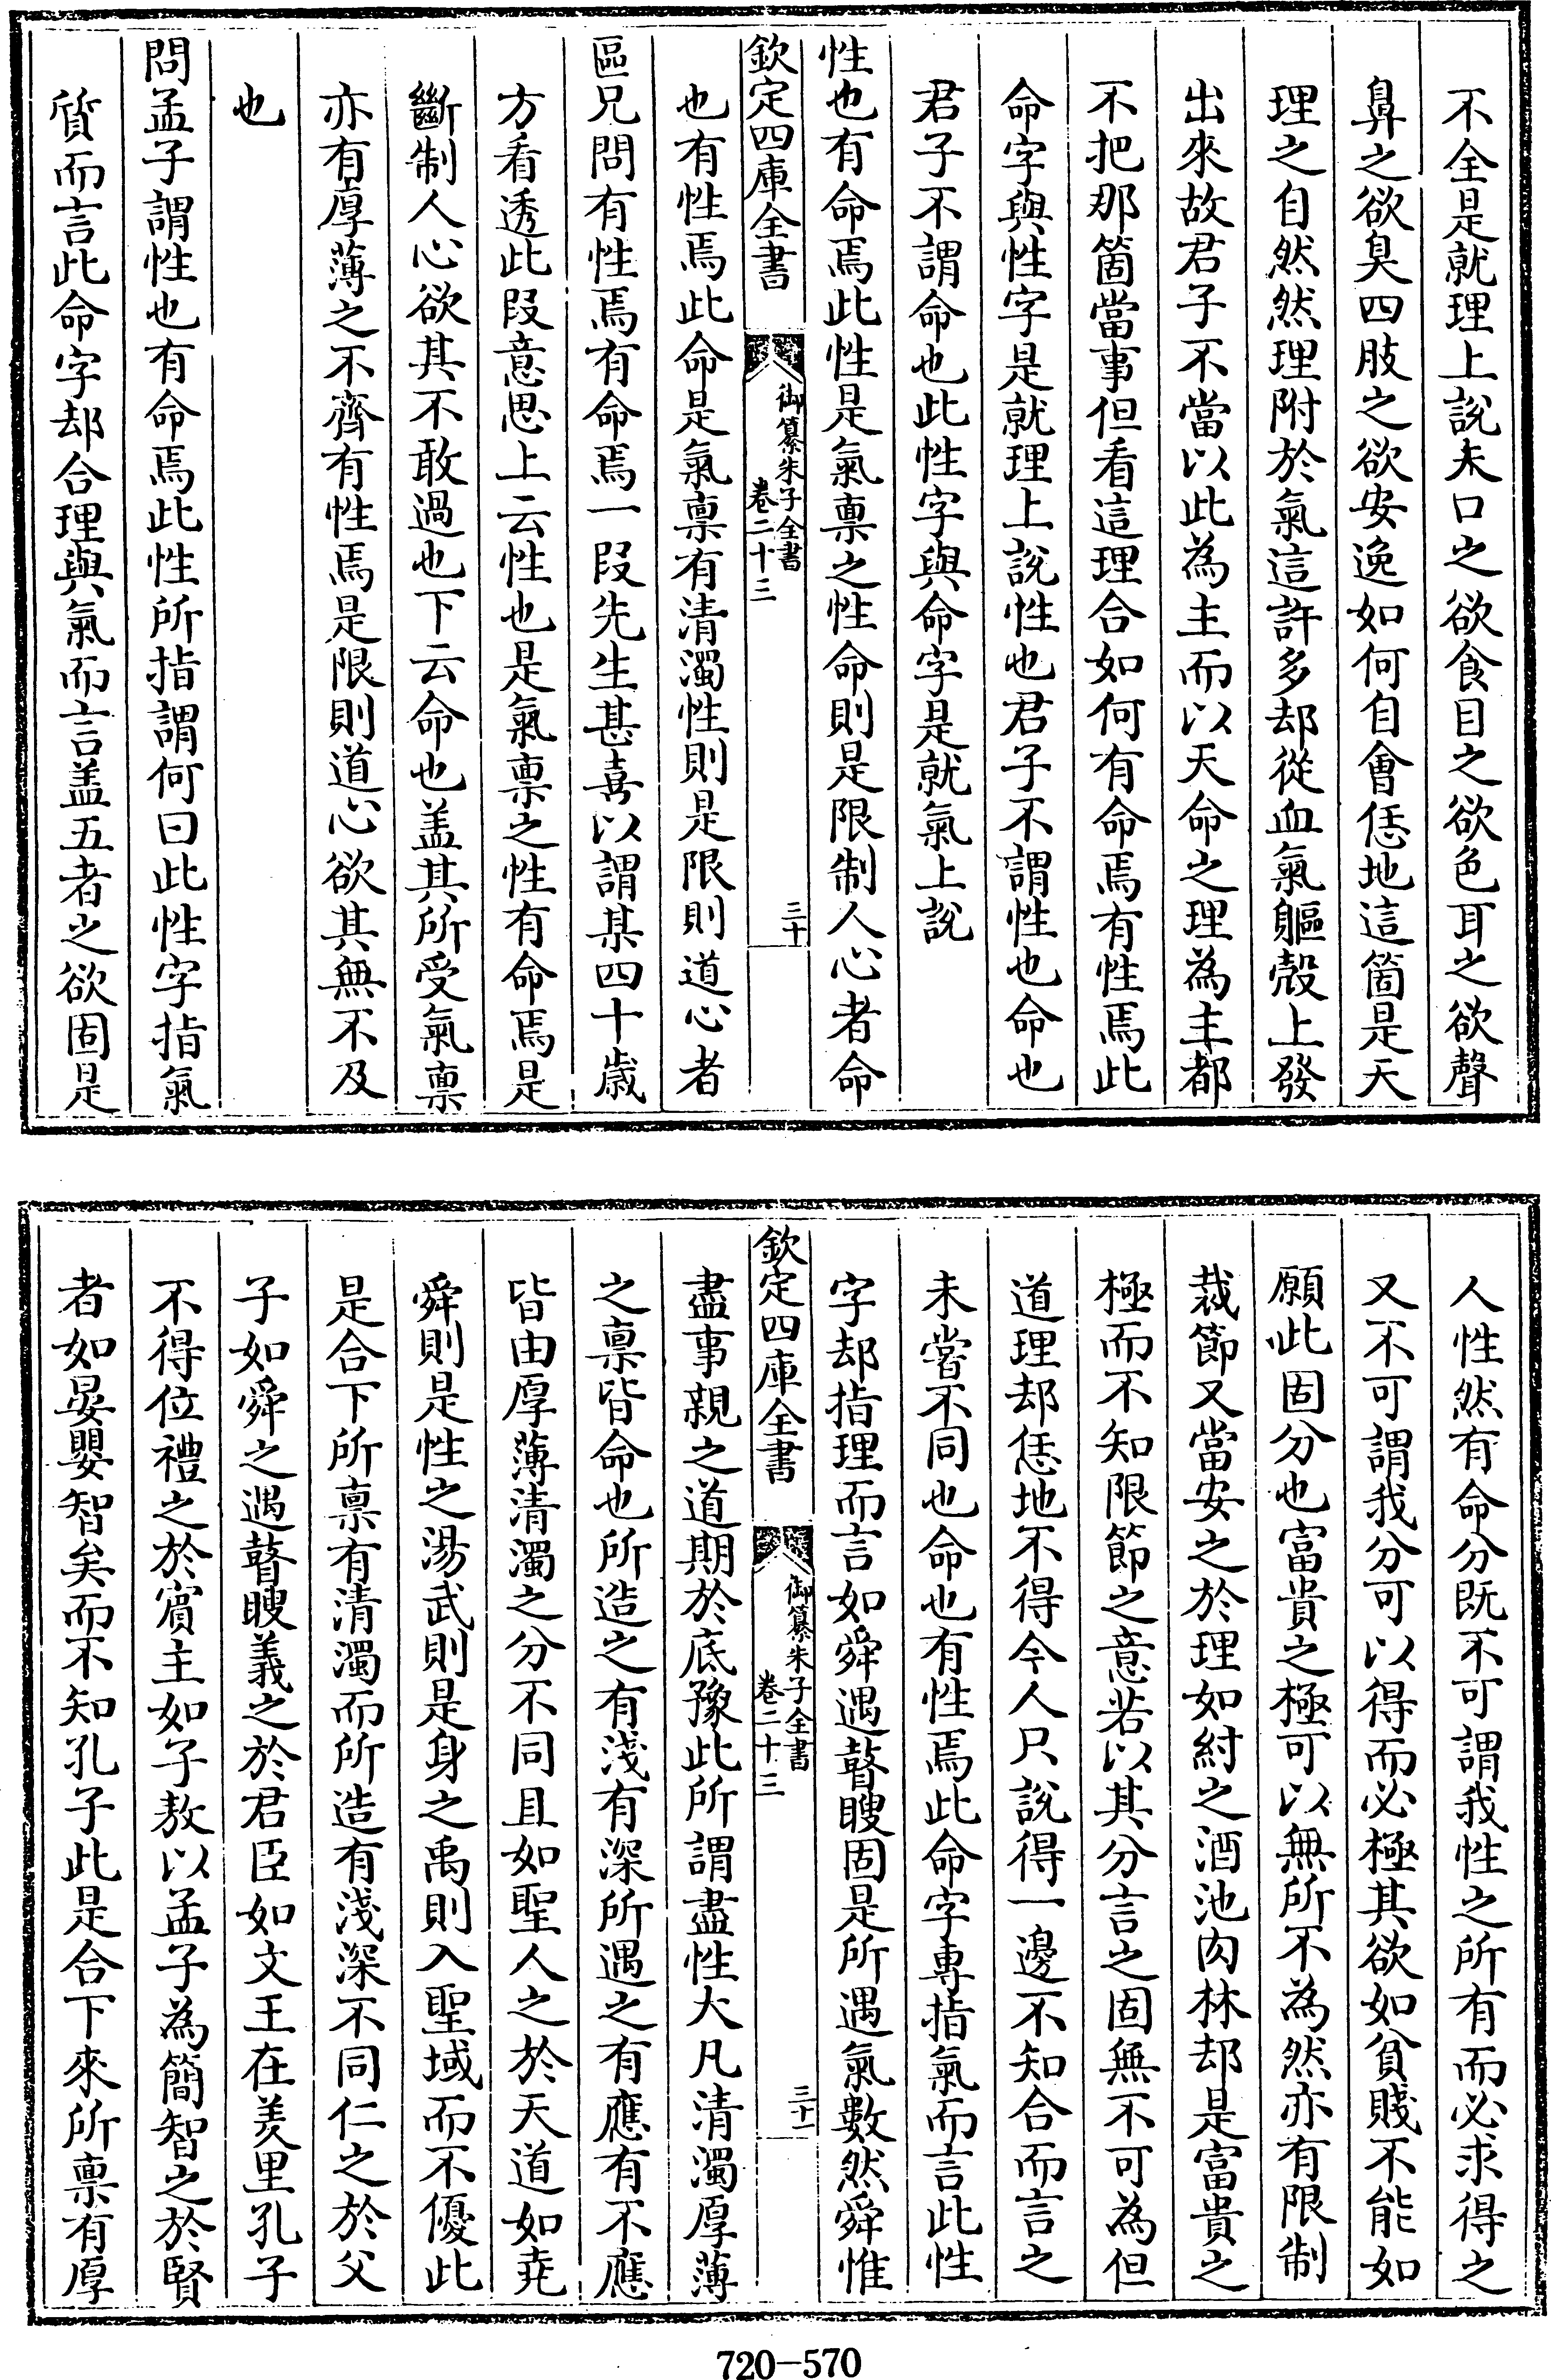 不全是就理上說夫口之欲食目之欲色耳之欲聲
鼻之欲臭四肢之欲安逸如何自會恁地這箇是天
理之自然然理附於氣這許多却從血氣軀殻上發
出來故君子不當以此為主而以天命之理為主都
不把那箇當事但看這理合如何有命焉有性焉此
命字與性字是就理上說性也君子不謂性也命也
君子不謂命也此性字與命字是就氣上說
性也有命焉此性是氣禀之性命則是限制人心者命
欽定四庫全書
御纂朱子全書
卷二十三
三十
也有性焉此命是氣禀有清濁性則是限則道心者
區兄問有性焉有命焉一段先生甚喜以謂某四十歲
方看透此段意思上云性也是氣禀之性有命焉是
斷制人心欲其不敢過也下云命也盖其所受氣禀
亦有厚薄之不齊有性焉是限則道心欲其無不及
也
問孟子謂性也有命焉此性所指謂何曰此性字指氣
質而言此命字却合理與氣而言盖五者之欲固是
人性然有命分既不可謂我性之所有而必求得之
又不可謂我分可以得而必極其欲如貧賤不能如
願此固分也富貴之極可以無所不為然亦有限制
裁節又當安之於理如紂之酒池肉林却是富貴之
極而不知限節之意若以其分言之固無不可為但
道理却恁地不得今人只說得一邊不知合而言之
未嘗不同也命也有性焉此命字專指氣而言此性
字却指理而言如舜遇瞽瞍固是所遇氣數然舜惟
欽定四庫全書
御纂朱子全書
卷二十三
三十一
盡事親之道期於底豫此所謂盡性大凡清濁厚薄
之禀皆命也所造之有淺有深所遇之有應有不應
皆由厚薄清濁之分不同且如聖人之於天道如堯
舜則是性之湯武則是身之禹則入聖域而不優此
是合下所禀有清濁而所造有淺深不同仁之於父
子如舜之遇瞽瞍義之於君臣如文王在羑里孔子
不得位禮之於賓主如子敖以孟子為簡智之於賢
者如晏嬰智矣而不知孔子此是合下來所禀有厚
720-570